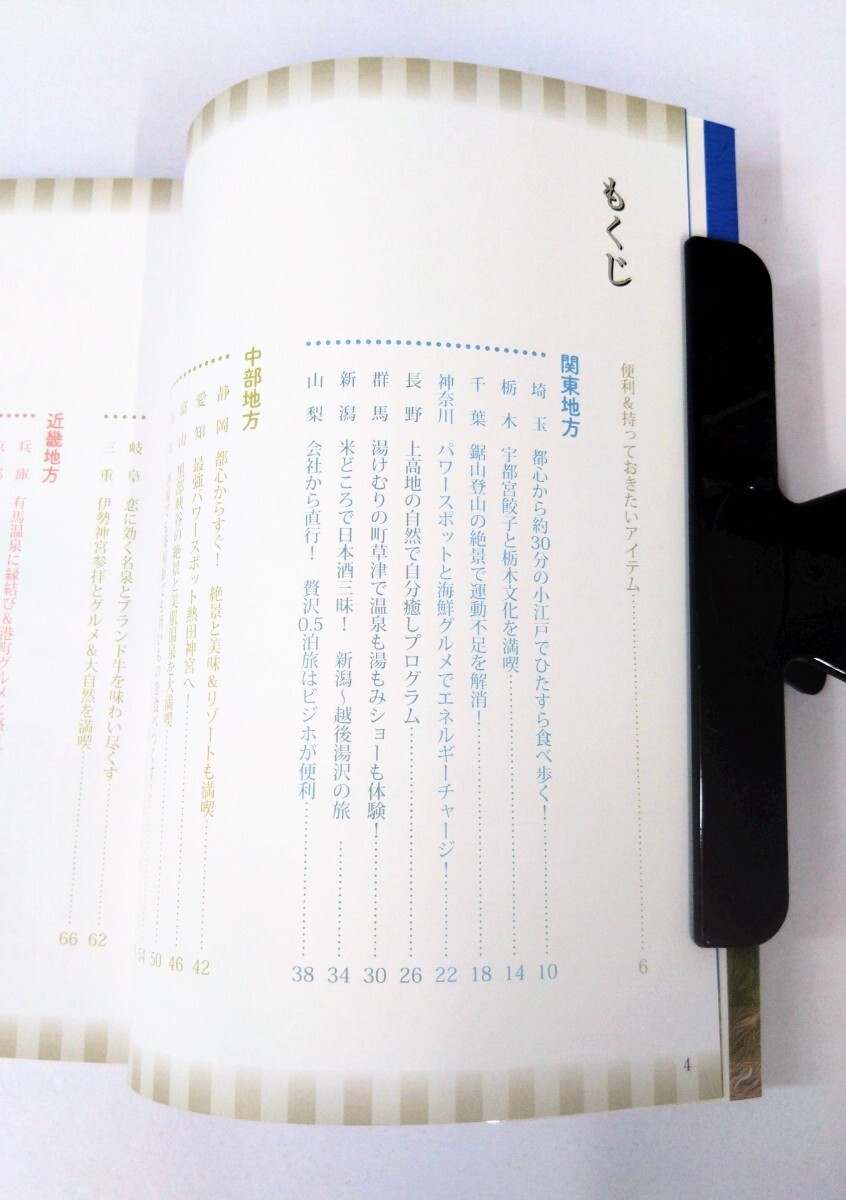 もくじ
便利&持っておきたいアイテム……………………6
関東地方
埼玉 都心から約30分の小江戸でひたすら食べ歩く!…………10
栃木 宇都宮餃子と栃木文化を満喫……………………14
千葉 鋸山登山の絶景で運動不足を解消!……………………18
神奈川 パワースポットと海鮮グルメでエネルギーチャージ!………22
長野 上高地の自然で自分癒しプログラム……………………26
群馬 湯けむりの町草津で温泉も湯もみショーも体験!…………30
新潟 米どころで日本酒三昧! 新潟〜越後湯沢の旅…………34
山梨 会社から直行! 贅沢0.5泊旅はビジホが便利…………38
中部地方
静岡 都心からすぐ! 絶景と美味&リゾートも満喫…………42
愛知 最強パワースポット熱田神宮へ!……………………46
富山 黒部峡谷の絶景と美肌温泉を大満喫……………………50
54
岐阜 恋に効く名泉とブランド牛を味わい尽くす
三重 伊勢神宮参拝とグルメ&大自然を満喫……………………62
66
近畿地方
兵庫 有馬温泉に縁結び&港町グルメと
4